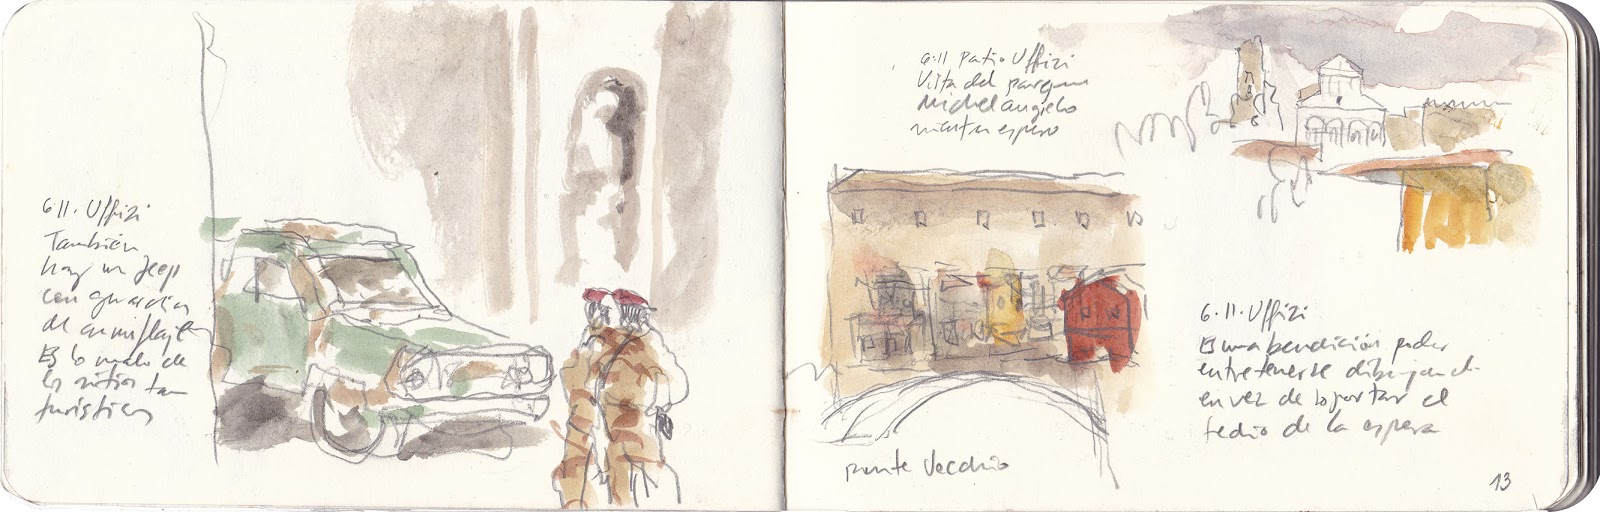 6.11. Uffizi
También
hay un Jeep
con guardias
de camuflaje
Es lo malo de
los sitios tan
turísticos
6.11 Patio Uffizi
Vista del parque
Michelangelo
mientras espero
ponte Vecchio
6.11. Uffizi
Es una bendición poder
entretenerse dibujando
en vez de soportar el
tedio de la espera
13